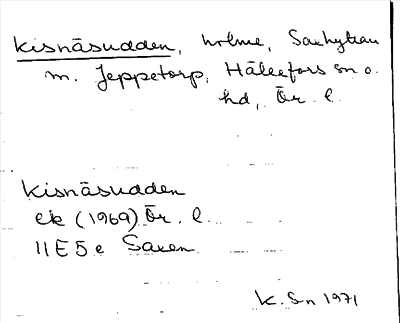 Kisnäsudden, holme, Saxhyttan
m. Jeppetorp, Hällefors sn o.
hd, Ör. l.
Kisnäsudden
ek (1969) Ör. l.
11E5e Saxen
K. Sn 1971